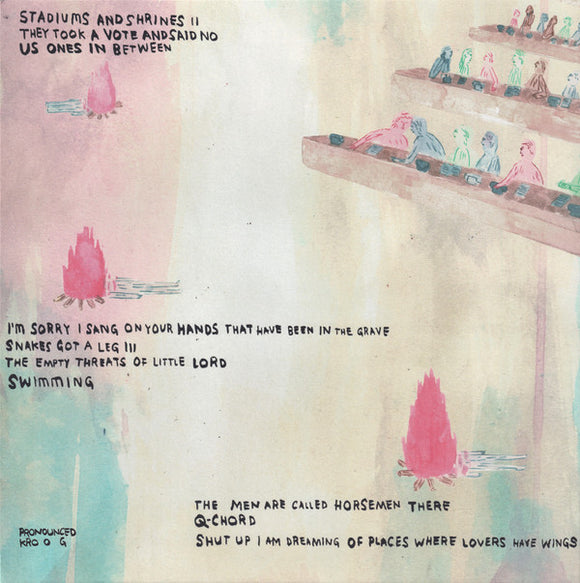 STADIUMS AND SHRINES II
THEY TOOK A VOTE AND SAID NO
US ONES IN BETWEEN
I'M SORRY I SANG ON YOUR HANDS THAT HAVE BEEN IN THE GRAVE
SNAKES GOT A LEG III
THE EMPTY THREATS OF LITTLE LORD
SWIMMING
THE MEN ARE CALLED HORSEMEN THERE
Q-CHORD
SHUT UP I AM DREAMING OF PLACES WHERE LOVERS HAVE WINGS
PRONOUNCED
KRO O G